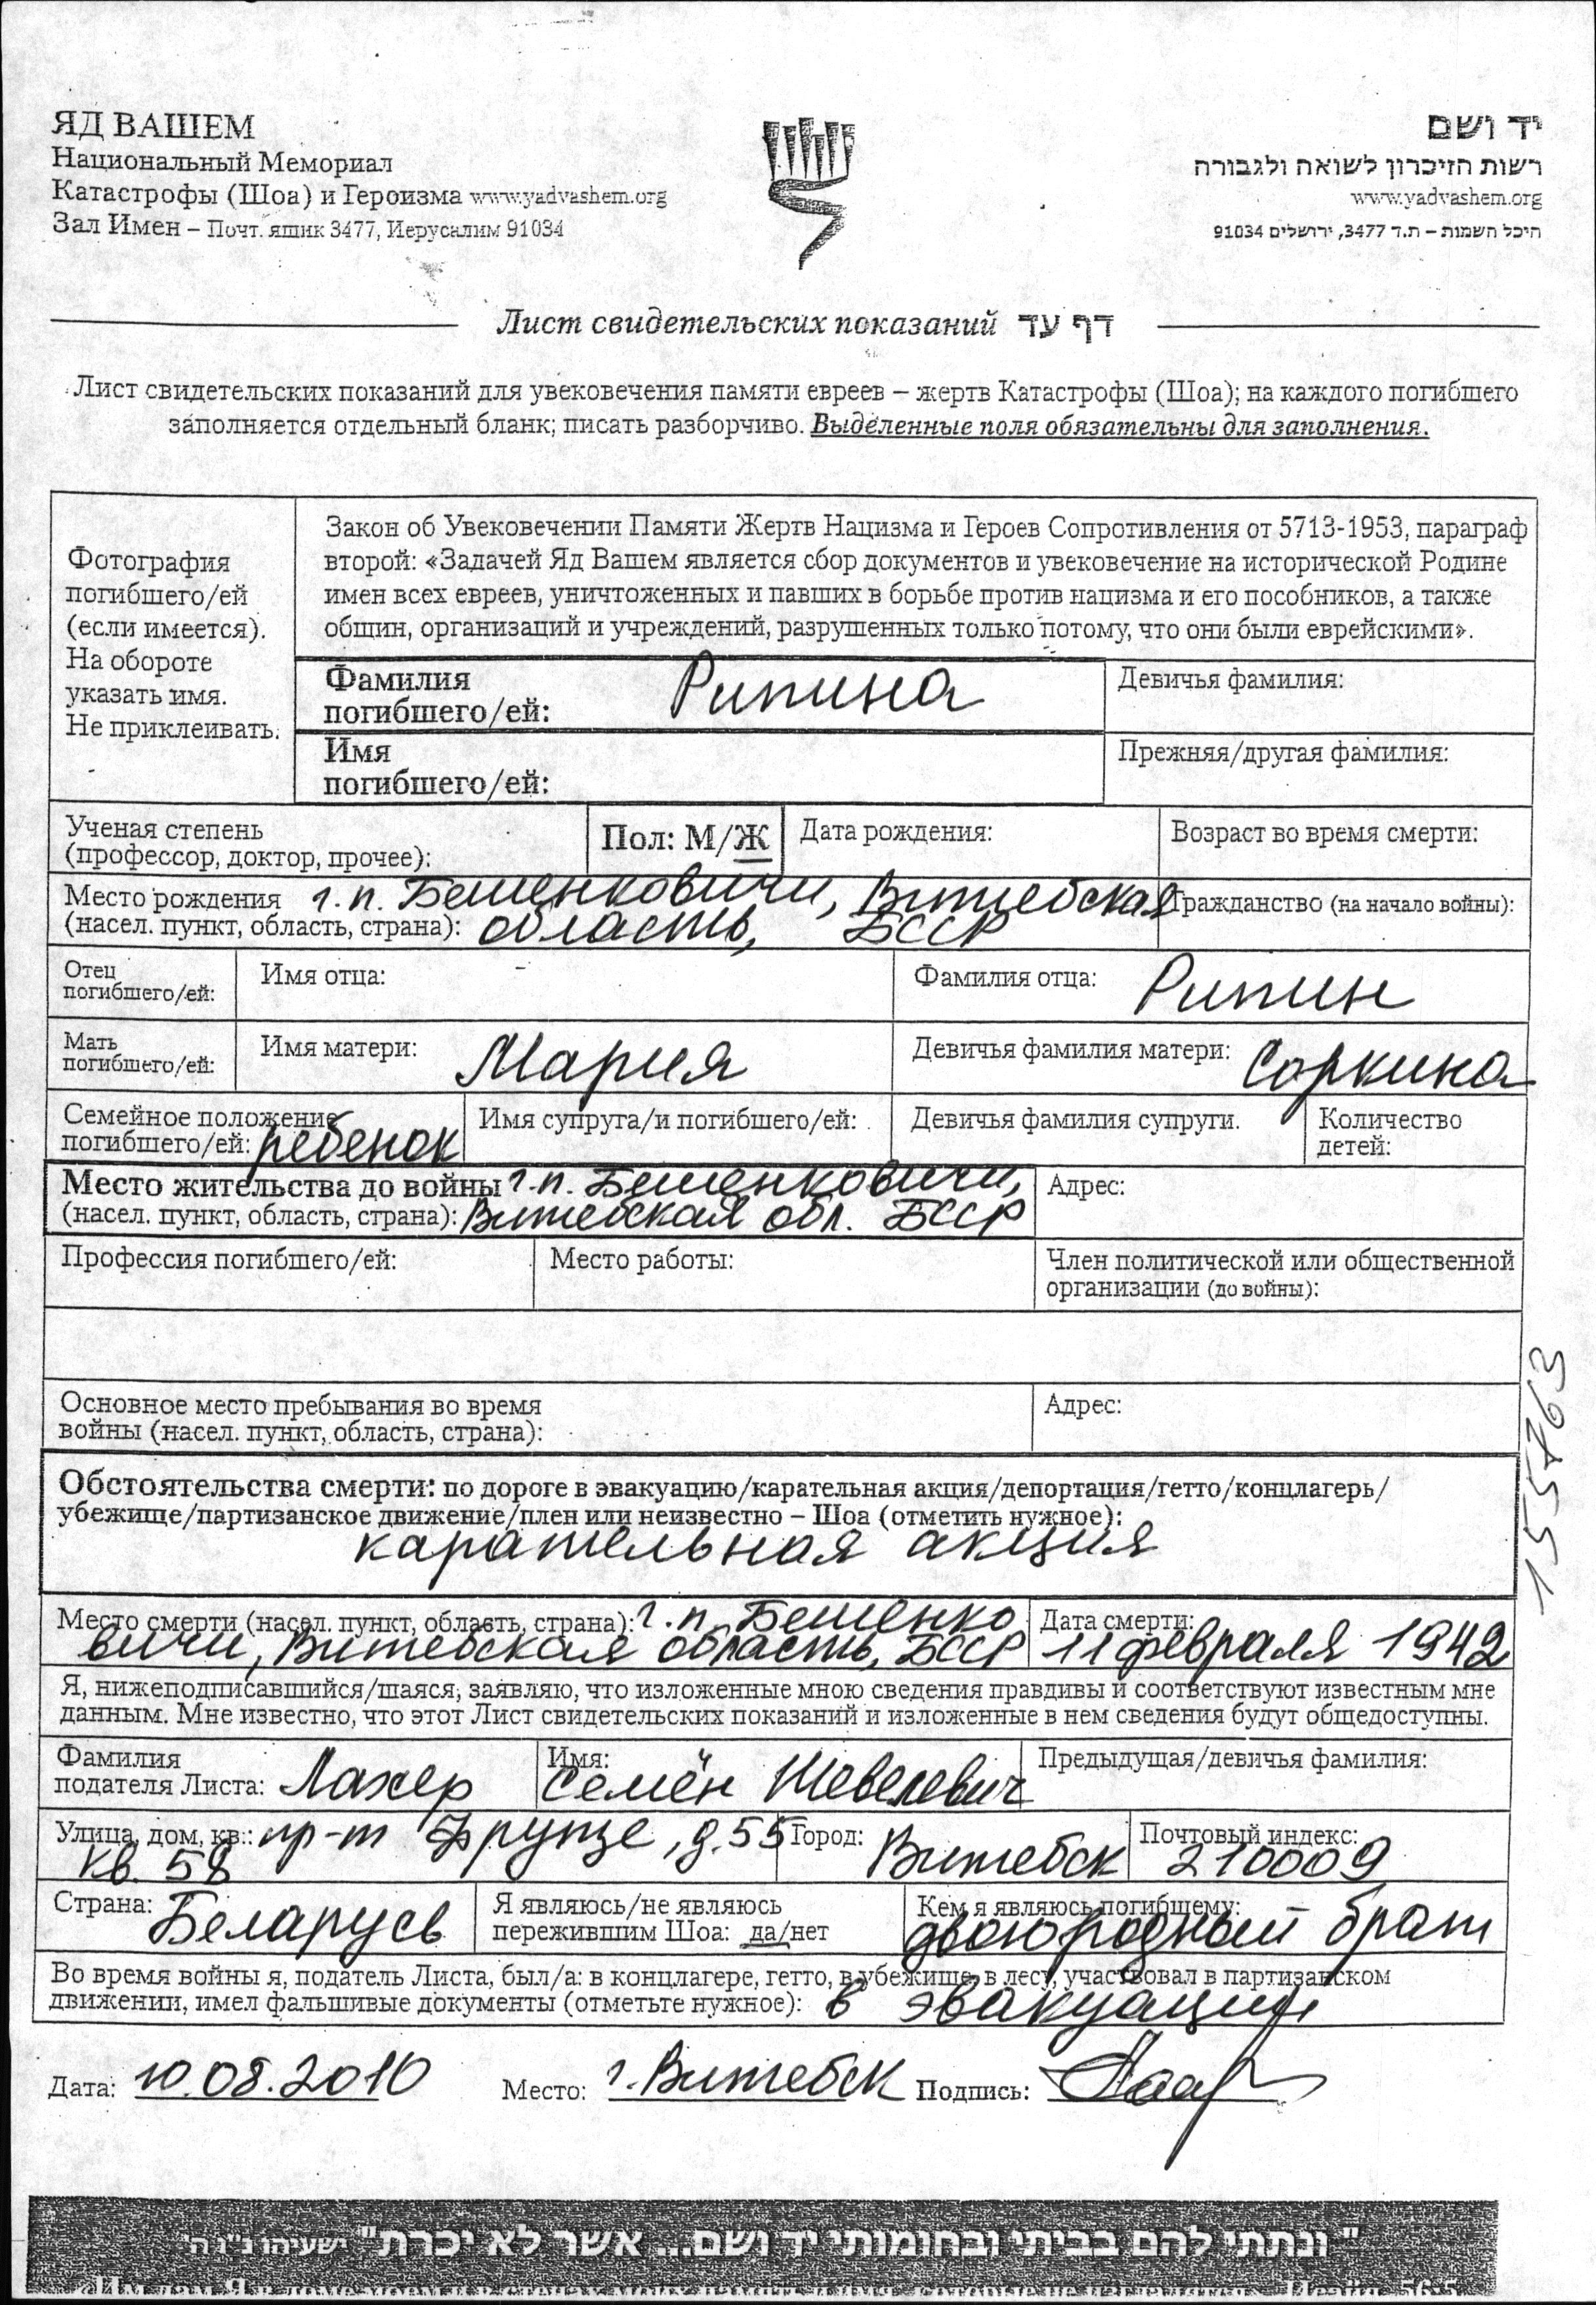 ЯД ВАШЕМ
Национальный Мемориал
Катастрофы (Шоа) и Героизма www.yadvashem.org
Зал Имен – Почт. ящик 3477, Иерусалим 91034
יד ושם
רשות הזיכרון לשואה ולגבורה
www.yadvashem.org
היכל השמות – ת.ד 3477, ירושלים 91034
Лист свидетельских показаний דף עד
Лист свидетельских показаний для увековечения памяти евреев – жертв Катастрофы (Шоа); на каждого погибшего
заполняется отдельный бланк; писать разборчиво. Выделенные поля обязательны для заполнения.
Фотография
погибшего/ей
(если имеется).
На обороте
указать имя.
Не приклеивать.
Закон об Увековечении Памяти Жертв Нацизма и Героев Сопротивления от 5713-1953, параграф
второй: «Задачей Яд Вашем является сбор документов и увековечение на исторической Родине
имен всех евреев, уничтоженных и павших в борьбе против нацизма и его пособников, а также
общин, организаций и учреждений, разрушенных только потому, что они были еврейскими».
Фамилия
погибшего/ей: Рипина
Девичья фамилия:
Имя
погибшего/ей:
Прежняя/другая фамилия:
Ученая степень
(профессор, доктор, прочее):
Пол: М/Ж
Дата рождения:
Возраст во время смерти:
Место рождения г.п. Бешенковичи, Витебская
(насел. пункт, область, страна): область, БССР
Гражданство (на начало войны):
Отец
погибшего/ей:
Имя отца:
Фамилия отца: Рипин
Мать
погибшего/ей:
Имя матери: Мария
Девичья фамилия матери: Соркина
Семейное положение
погибшего/ей: ребенок
Имя супруга/и погибшего/ей:
Девичья фамилия супруги.
Количество
детей:
Место жительства до войны г.п. Бешенковичи,
(насел. пункт, область, страна): Витебская обл. БССР
Адрес:
Профессия погибшего/ей:
Место работы:
Член политической или общественной
организации (до войны):
Основное место пребывания во время
войны (насел. пункт, область, страна):
Адрес:
155763
Обстоятельства смерти: по дороге в эвакуацию/карательная акция/депортация/гетто/концлагерь/
убежище/партизанское движение/плен или неизвестно – Шоа (отметить нужное):
карательная акция
Место смерти (насел. пункт, область, страна): г.п. Бешенко
вичи, Витебская область, БССР
Дата смерти:
11 февраля 1942
Я, нижеподписавшийся/шаяся, заявляю, что изложенные мною сведения правдивы и соответствуют известным мне
данным. Мне известно, что этот Лист свидетельских показаний и изложенные в нем сведения будут общедоступны.
Фамилия
подателя Листа: Лахер
Имя:
Семён Шевелевич
Предыдущая/девичья фамилия:
Улица, дом, кв.: пр-т Фрунзе, д.55
кв. 58
Город: Витебск
Почтовый индекс:
210009
Страна: Беларусь
Я являюсь/не являюсь
пережившим Шоа: да/нет
Кем я являюсь погибшему:
двоюродный брат
Во время войны я, податель Листа, был/а: в концлагере, гетто, в убежище, в лесу, участвовал в партизанском
движении, имел фальшивые документы (отметьте нужное): в эвакуации
Дата: 10.08.2010 Место: г. Витебск Подпись:
"ונתתי להם בביתי ובחומותי יד ושם... אשר לא יכרת" ישעיהו נ"ו ה